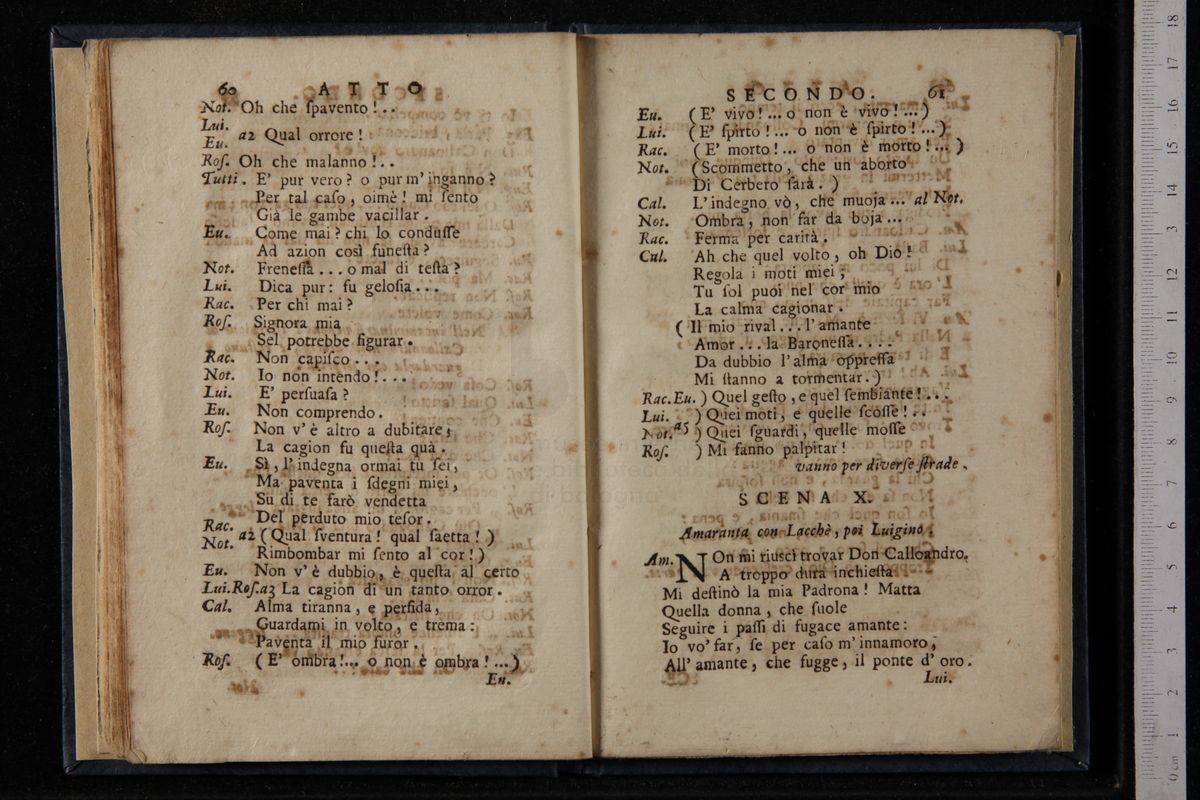 60 ATTO
Not. Oh che ſpavento!..
Lui.
Eu. a2 Qual orrore!
Roſ. Oh che malanno!..
Tutti. E' pur vero? o pur m'inganno?
Per tal caſo, oimè! mi ſento
Già le gambe vacillar.
Eu. Come mai? chi lo conduſſe
Ad azion così funeſta?
Not. Freneſia... o mal di teſta?
Lui. Dica pur: fu geloſia...
Rac. Per chi mai?
Roſ. Signora mia
Sel potrebbe figurar.
Rac. Non capiſco...
Not. Io non intendo!...
Lui. E' perſuaſa?
Eu. Non comprendo.
Roſ. Non v'è altro a dubitare,
La cagion fu queſta quà.
Eu. Sì, l'indegna ormai tu ſei,
Ma paventa i ſdegni miei,
Su di te farò vendetta
Del perduto mio teſor.
Rac.
Not. a2 (Qual ſventura! qual ſaetta!)
Rimbombar mi ſento al cor!)
Eu. Non v'è dubbio, è queſta al certo
Lui.Roſ.a3 La cagion di un tanto orror.
Cal. Alma tiranna, e perfida,
Guardami in volto, e trema:
Paventa il mio furor.
Roſ. (E' ombra!... o non è ombra!...)
Eu.
SECONDO. 61
Eu. (E' vivo!... o non è vivo!...)
Lui. (E' ſpirto!... o non è ſpirto!...)
Rac. (E' morto!... o non è morto!...)
Not. (Scommetto, che un aborto
Di Cerbero ſarà.)
Cal. L'indegno vò, che muoja... al Not.
Not. Ombra, non far da boja...
Rac. Ferma per carità.
Cal. Ah che quel volto, oh Dio!
Regola i moti miei,
Tu ſol puoi nel cor mio
La calma cagionar.
(Il mio rival... l'amante
Amor... la Baroneſſa....
Da dubbio l'alma oppreſſa
Mi ſtanno a tormentar.)
Rac.Eu. ) Quel geſto, e quel ſembiante!...
Lui. ) Quei moti, e quelle ſcoſſe!..
Not. a5 ) Quei ſguardi, quelle moſſe
Roſ. ) Mi fanno palpitar!
vanno per diverſe ſtrade.
SCENA X.
Amaranta con Lacchè, poi Luigino.
Am. NOn mi riuscì trovar Don Calloandro.
A troppo dura inchieſta
Mi deſtinò la mia Padrona! Matta
Quella donna, che ſuole
Seguire i paſſi di fugace amante:
Io vo' far, ſe per caſo m'innamoro,
All'amante, che fugge, il ponte d'oro.
Lui.